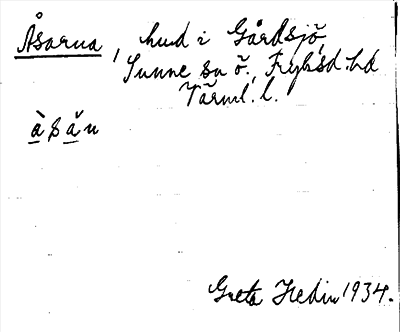 Åsarna, hud i Gårdsjö,
Sunne sn ö., Fryksd. hd
Värml. l.
å s ă n
Greta Hedin 1934.